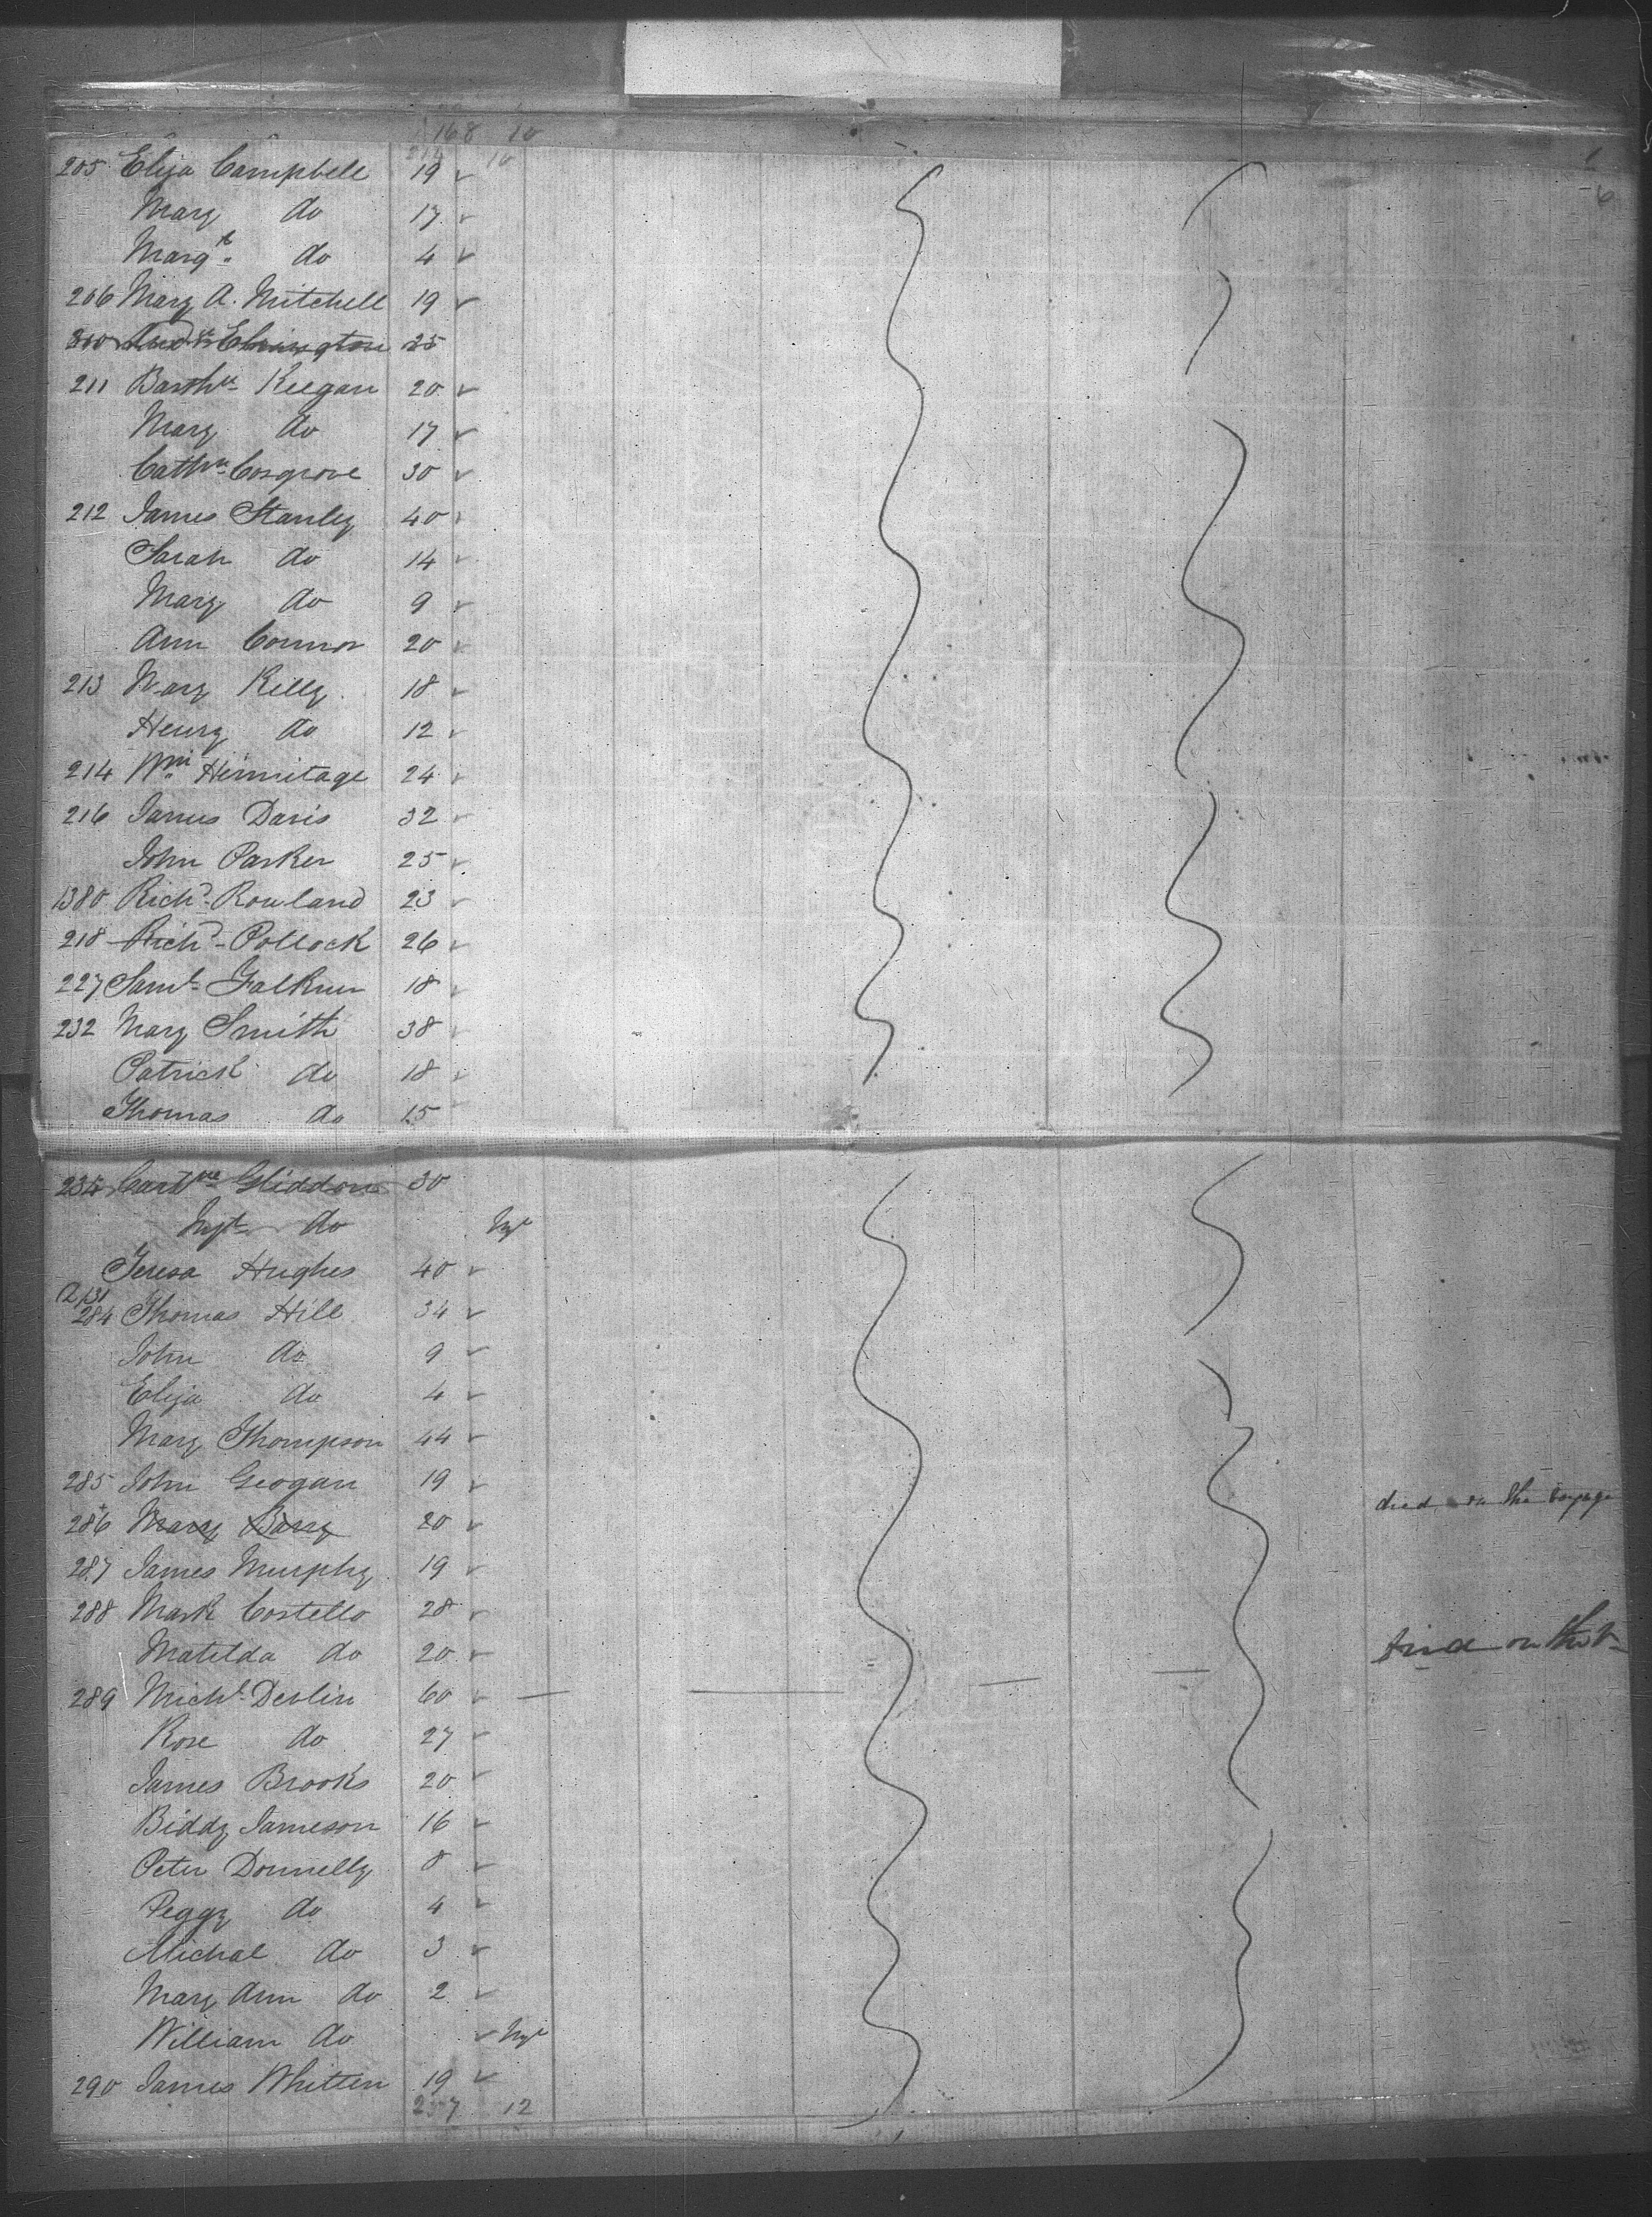 168 10
214 10
205 Eliza Campbell 19
Mary do 17
Margt. do 4
206 Mary A. Mitchell 19
210 Elrington 25
211 Barthw Keegan 20
Mary do 17
Cathn Cosgrove 30
212 James Stanley 40
Sarah do 14
Mary do 9
Ann Connor 20
213 Mary Kelly 18
Henry do 12
214 Wm. Hermitage 24
216 James Davis 32
John Parker 25
1380 Richd Rowland 23
218 Richd Pollock 26
227 Saml Falkner 18
232 Mary Smith 38
Patrick do 18
Thomas do 15
234 Gliddon 30
Inft do Inft
Teresa Hughes 40
284 Thomas Hill 34
John do 9
Eliza do 4
Mary Thompson 44
285 John Geogan 19
286 Mary Barry 20 died on the voyage
287 James Murphy 19
288 Mark Costello 28
Matilda do 20
289 Michl Devlin 60 died on the V
Rose do 27
James Brooks 20
Biddy Jameson 16
Peter Donnelly 8
Peggy do 4
Michal do 3
Mary Ann do 2
William do Inft
290 James Whitten 19
257 12